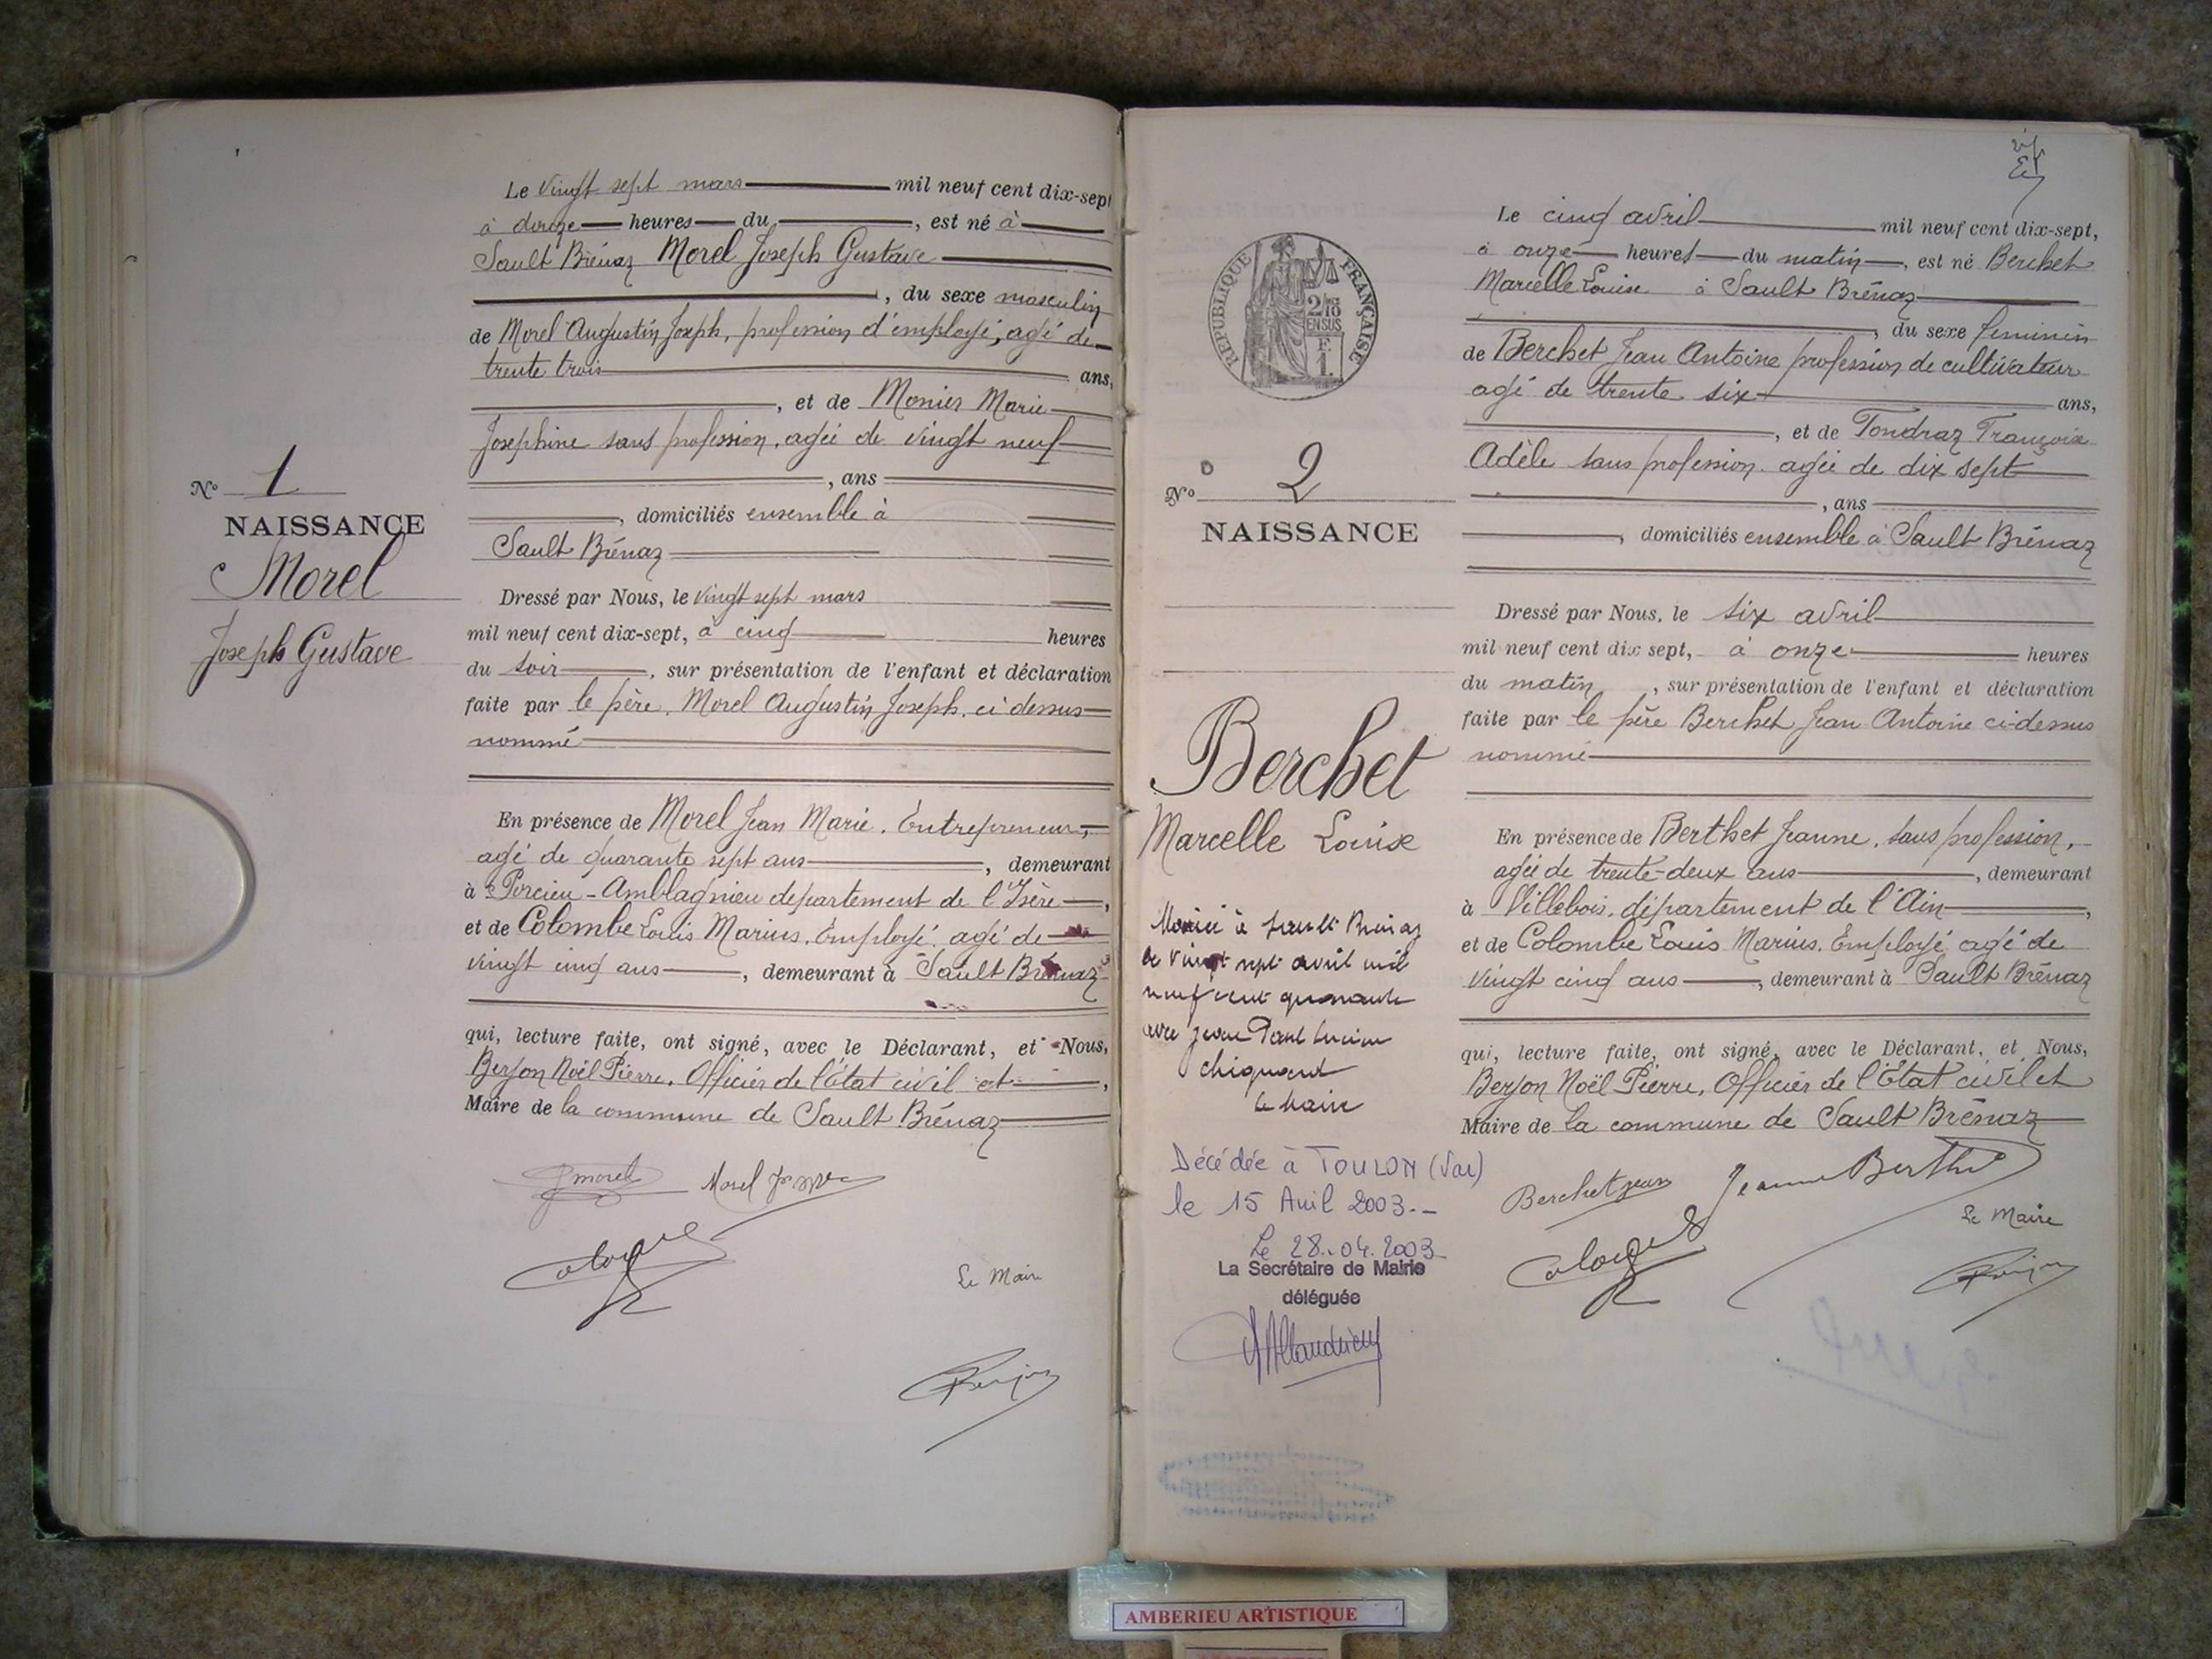 Le vingt sept mars mil neuf cent dix-sept
à douze heures du , est né à
Sault Brénaz Morel Joseph Gustave
, du sexe masculin
de Morel Augustin Joseph, profession d'employé, agé de
trente trois ans,
, et de Monier Marie
Josephine sans profession, agée de vingt neuf
, ans
, domiciliés ensemble à
Sault Brénaz
Nº 1
NAISSANCE
Morel
Joseph Gustave
Dressé par Nous, le vingt sept mars
mil neuf cent dix-sept, à cinq heures
du soir , sur présentation de l'enfant et déclaration
faite par le père, Morel Augustin Joseph, ci dessus
nommé
En présence de Morel Jean Marie. Entrepreneur,
agé de quarante sept ans , demeurant
à Porcieu-Amblagnieu département de l'Isère ,
et de Colombe Louis Marius. Employé. agé de
vingt cinq ans , demeurant à Sault Brénaz
qui, lecture faite, ont signé, avec le Déclarant, et Nous,
Berjon Noël Pierre, Officier de l'Etat civil et ,
Maire de la commune de Sault Brénaz
Jmorel Morel
Le Maire
Le cinq avril mil neuf cent dix-sept,
à onze heures du matin , est né Berchet
Marcelle Louise à Sault Brénaz
, du sexe feminin
de Berchet Jean Antoine profession de cultivateur
agé de trente six ans,
, et de Tondraz Françoise
Adèle sans profession. agée de dix sept
, ans
, domiciliés ensemble à Sault Brénaz
RÉPUBLIQUE FRANÇAISE
2/10
EN SUS
F.
1.
Nº 2
NAISSANCE
Berchet
Marcelle Louise
Mariée à Sault Brénaz
le vingt sept avril mil
neuf cent quarante
avec Jean Paul Lucien
Chiquard
Le Maire
Décédée à TOULON (Var)
le 15 Avril 2003.-
Le 28.04.2003
La Secrétaire de Mairie
déléguée
Dressé par Nous, le six avril
mil neuf cent dix sept, à onze heures
du matin , sur présentation de l'enfant et déclaration
faite par le père Berchet Jean Antoine ci-dessus
nommé
En présence de Berthet Jeanne, sans profession,
agée de trente-deux ans , demeurant
à Villebois, département de l'Ain ,
et de Colombe Louis Marius, Employé agé de
vingt cinq ans , demeurant à Sault Brénaz
qui, lecture faite, ont signé, avec le Déclarant, et Nous,
Berjon Noël Pierre, Officier de l'Etat civil et
Maire de la commune de Sault Brénaz
Berchet jean Jeanne Berthet
Le Maire
AMBERIEU ARTISTIQUE